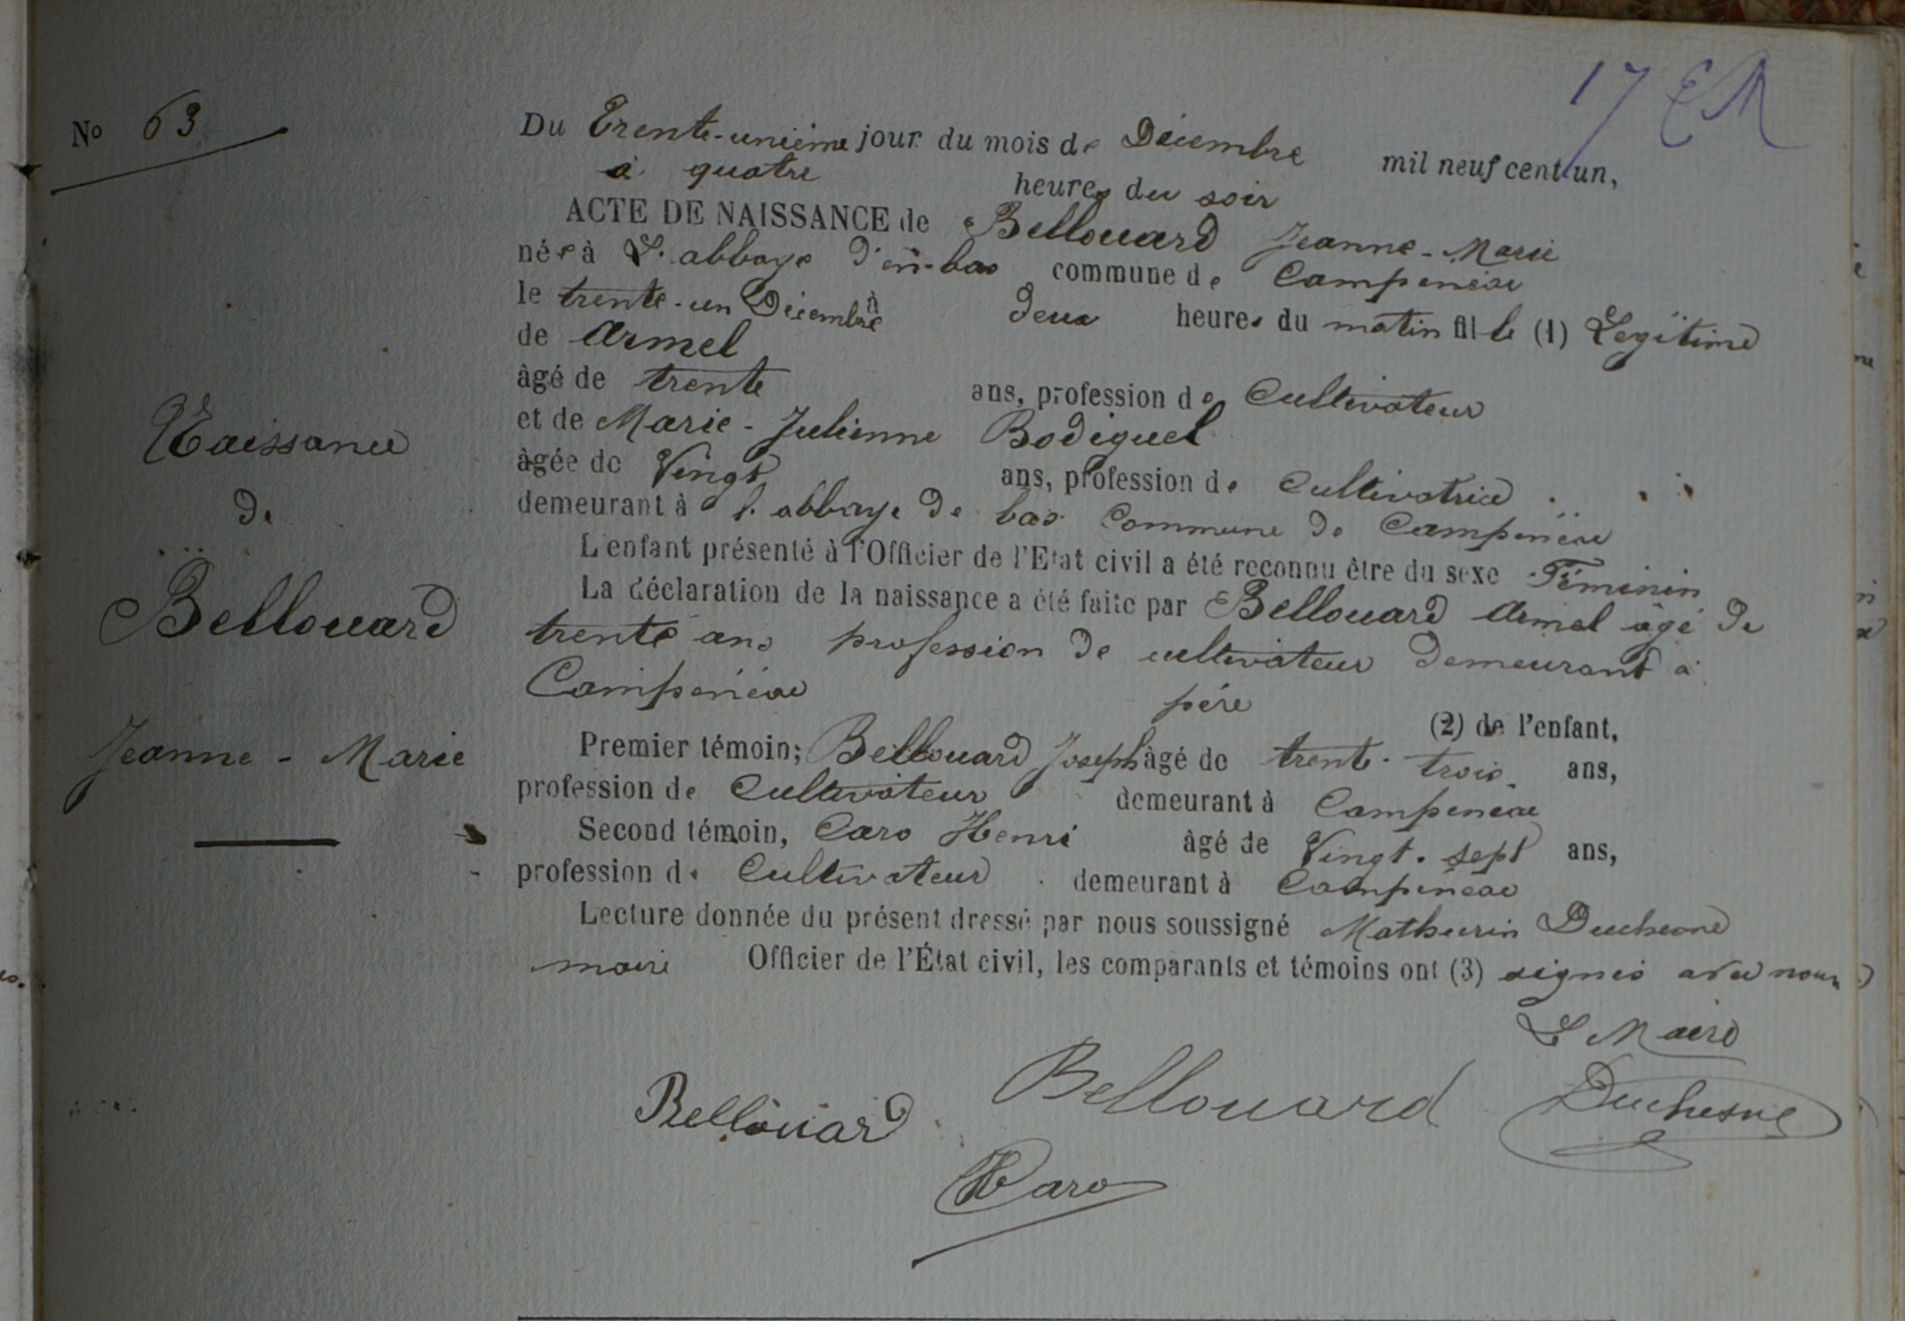 17 EM
No 63
Naissance
de
Bellouard
Jeanne-Marie
Du Trente-unième jour du mois de Décembre mil neuf cent un,
à quatre heures du soir
ACTE DE NAISSANCE de Bellouard Jeanne-Marie
née à L'abbaye d'en-bas commune de Campénéac
le trente-un Décembre à deux heures du matin fille (1) Légitime
de Armel
âgé de trente ans, profession de Cultivateur
et de Marie-Julienne Bodiguel
âgée de Vingt ans, profession de Cultivatrice
demeurant à l'abbaye de bas Commune de Campénéac
L'enfant présenté à l'Officier de l'Etat civil a été reconnu être du sexe Féminin
La déclaration de la naissance a été faite par Bellouard Armel âgé de
trente ans profession de cultivateur demeurant à
Campénéac père (2) de l'enfant,
Premier témoin; Bellouard Joseph âgé de trente-trois ans,
profession de Cultivateur demeurant à Campénéac
Second témoin, Caro Henri âgé de Vingt-sept ans,
profession de Cultivateur demeurant à Campénéac
Lecture donnée du présent dressé par nous soussigné Mathurin Duchesne
maire Officier de l'État civil, les comparants et témoins ont (3) signés avec nous
Le Maire
Bellouard Bellouard Duchesne
HCaro